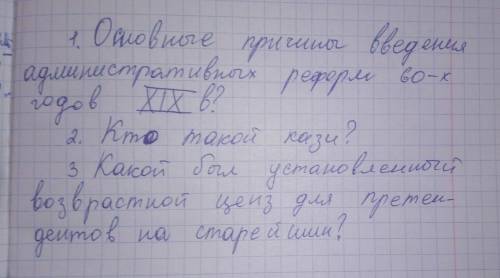 1. Основные причины введения
административных реформ 60-х
годов XIX в?
2. Кто такой кази?
3 Какой был установленный
возврастной ценз для претен-
дентов на старейшин?